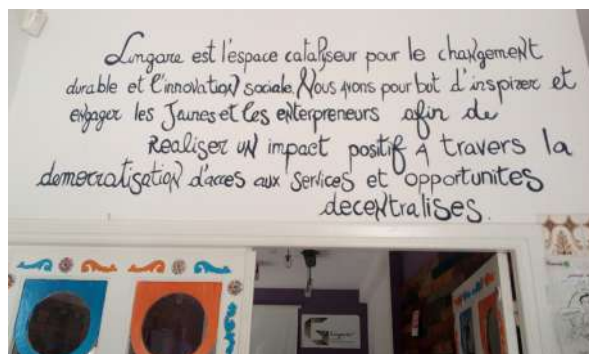 Lingare est l'espace catalyseur pour le changement
durable et l'innovation sociale. Nous avons pour but d'inspirer et
engager les Jaunes et les enterpreneurs afin de
Realiser un impact positif A travers la
democratisation d'acces aux services et opportunites
decentralises.